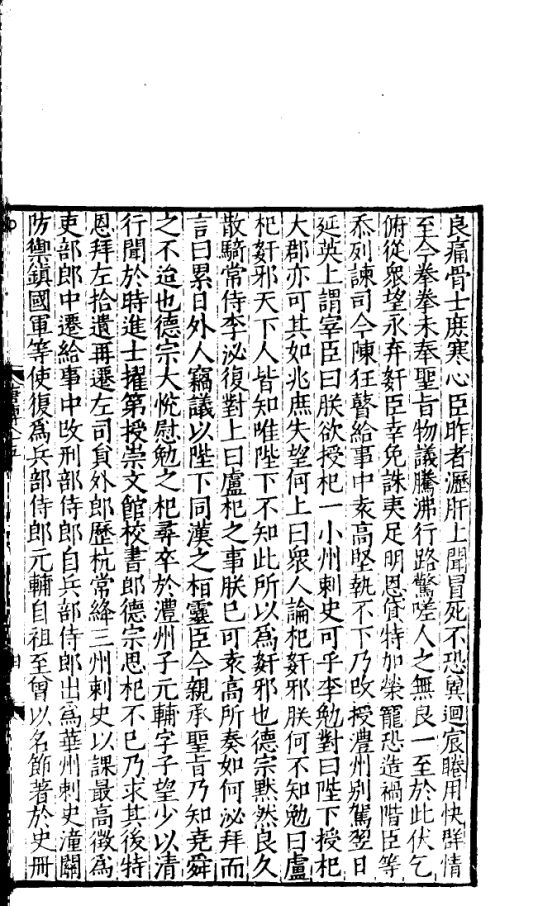 良痛骨士庶寒心臣昨者瀝肝上聞冒死不恐冀迴宸睠用快群情
至今拳拳未奉聖旨物議騰沸行路驚嗟人之無良一至於此伏乞
俯從衆望永弃姧臣幸免誅夷足明恩貸特加榮寵恐造禍階臣等
忝列諫司今陳狂瞽給事中袁高堅執不下乃改授澧州别駕翌日
延英上謂宰臣曰朕欲授杞一小州刺史可乎李勉對曰陛下授杞
大郡亦可其如兆庶失望何上曰衆人論杞姧邪朕何不知勉曰盧
杞姧邪天下人皆知唯陛下不知此所以爲姧邪也德宗默然良久
散騎常侍李泌復對上曰盧杞之事朕已可袁高所奏如何泌拜而
言曰累日外人竊議以陛下同漢之桓靈臣今親承聖旨乃知堯舜
之不迨也德宗大悦慰勉之杞尋卒於澧州子元輔字子望少以清
行聞於時進士擢第授崇文館校書郎德宗思杞不已乃求其後特
恩拜左拾遺再遷左司員外郎歷杭常絳三州刺史以課最高徵爲
吏部郎中遷給事中改刑部侍郎自兵部侍郎出爲華州刺史潼關
防禦鎮國軍等使復爲兵部侍郎元輔自祖至曾以名節著於史册